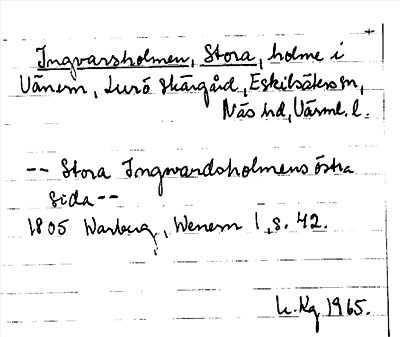 Ingvarsholmen, Stora, holme i
Vänern, Lurö skärgård, Eskilsäters sn,
Näs hd, Värml. l.
-- Stora Ingwardsholmens östra
sida --
1805 Warberg, Wenern 1, s. 42.
L. Kg 1965.